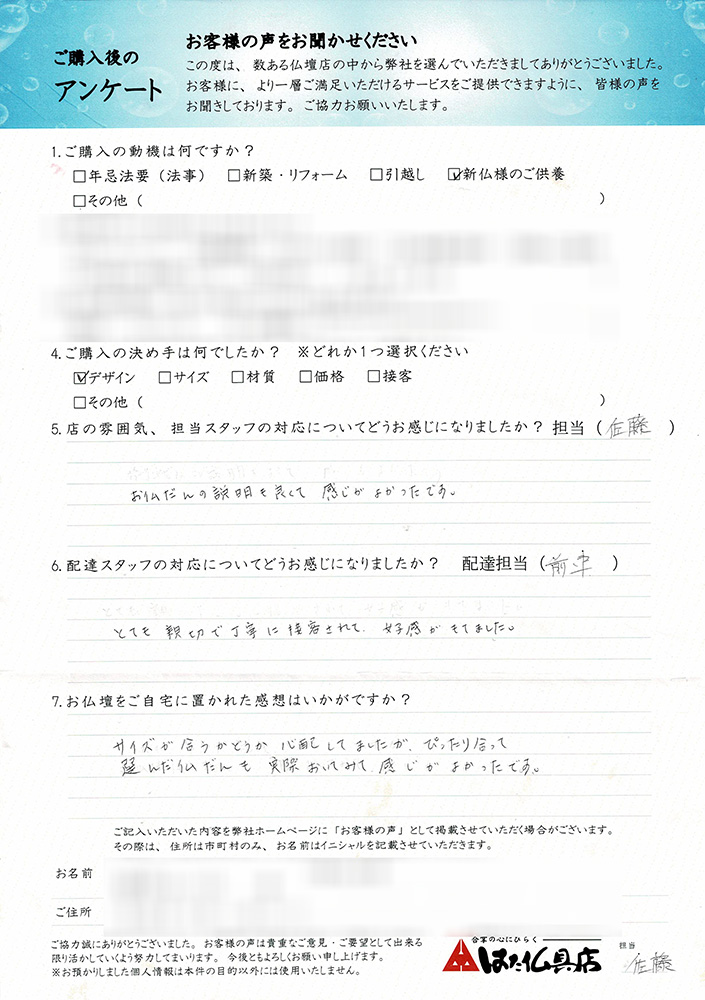 ご購入後の
アンケート
お客様の声をお聞かせください
この度は、数ある仏壇店の中から弊社を選んでいただきましてありがとうございました。
お客様に、より一層ご満足いただけるサービスをご提供できますように、皆様の声を
お聞きしております。ご協力お願いいたします。
1.ご購入の動機は何ですか？
□年忌法要（法事） □新築・リフォーム □引越し ☑新仏様のご供養
□その他（ ）
4.ご購入の決め手は何でしたか？ ※どれか1つ選択ください
☑デザイン □サイズ □材質 □価格 □接客
□その他（ ）
5.店の雰囲気、担当スタッフの対応についてどうお感じになりましたか？ 担当（佐藤 ）
お仏だんの説明も良くて 感じがよかったです。
6.配達スタッフの対応についてどうお感じになりましたか？ 配達担当（ ）
とても 親切で丁寧に接客されて、好感がもてました。
7.お仏壇をご自宅に置かれた感想はいかがですか？
サイズが合うかどうか 心配してましたが、ぴったり合って
選んだ仏だんも 実際おいてみて、感じがよかったです。
ご記入いただいた内容を弊社ホームページに「お客様の声」として掲載させていただく場合がございます。
その際は、住所は市町村のみ、お名前はイニシャルを記載させていただきます。
お名前
ご住所
ご協力誠にありがとうございました。お客様の声は貴重なご意見・ご要望として出来る
限り活かしていくよう努力してまいります。今後ともよろしくお願い申し上げます。
※お預かりしました個人情報は本件の目的以外には使用いたしません。
合掌の心にひらく
はた仏具店
担当
佐藤